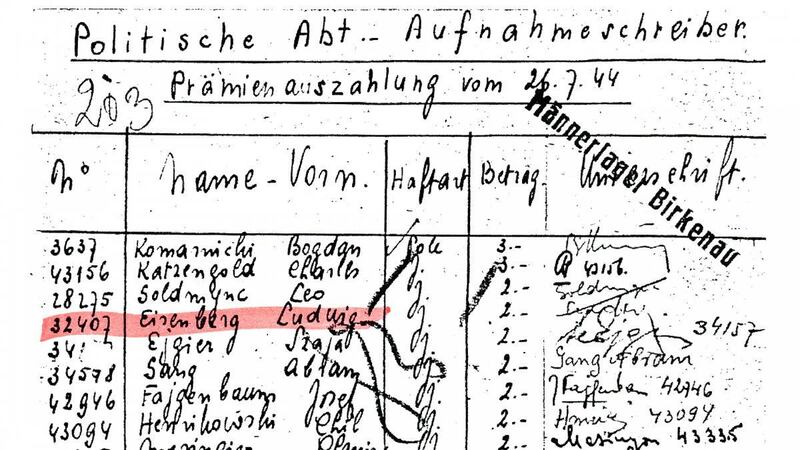 Politische Abt.- Aufnahmeschreiber.
203 Prämienauszahlung vom 26.7.44
Männerlager Birkenau
No Name-Vorn. Haftart Betrag. Unterschrift.
3637 Komarnicki Bogdan Pole 3.-
43156 Katzengold Charles J. 3.- 43156.
28275 Soldmync Leo J. 2.-
32407 Eisenberg Ludwig J. 2.-
34157
Ejgier Szaja J. 2.-
34578 Sang Abram J. 2.- Sang Abram
42946 Fajgenbaum Josef J. 2.- 42946
43094 Henrikowski Chil J. 2.- 43094
2.- 43335